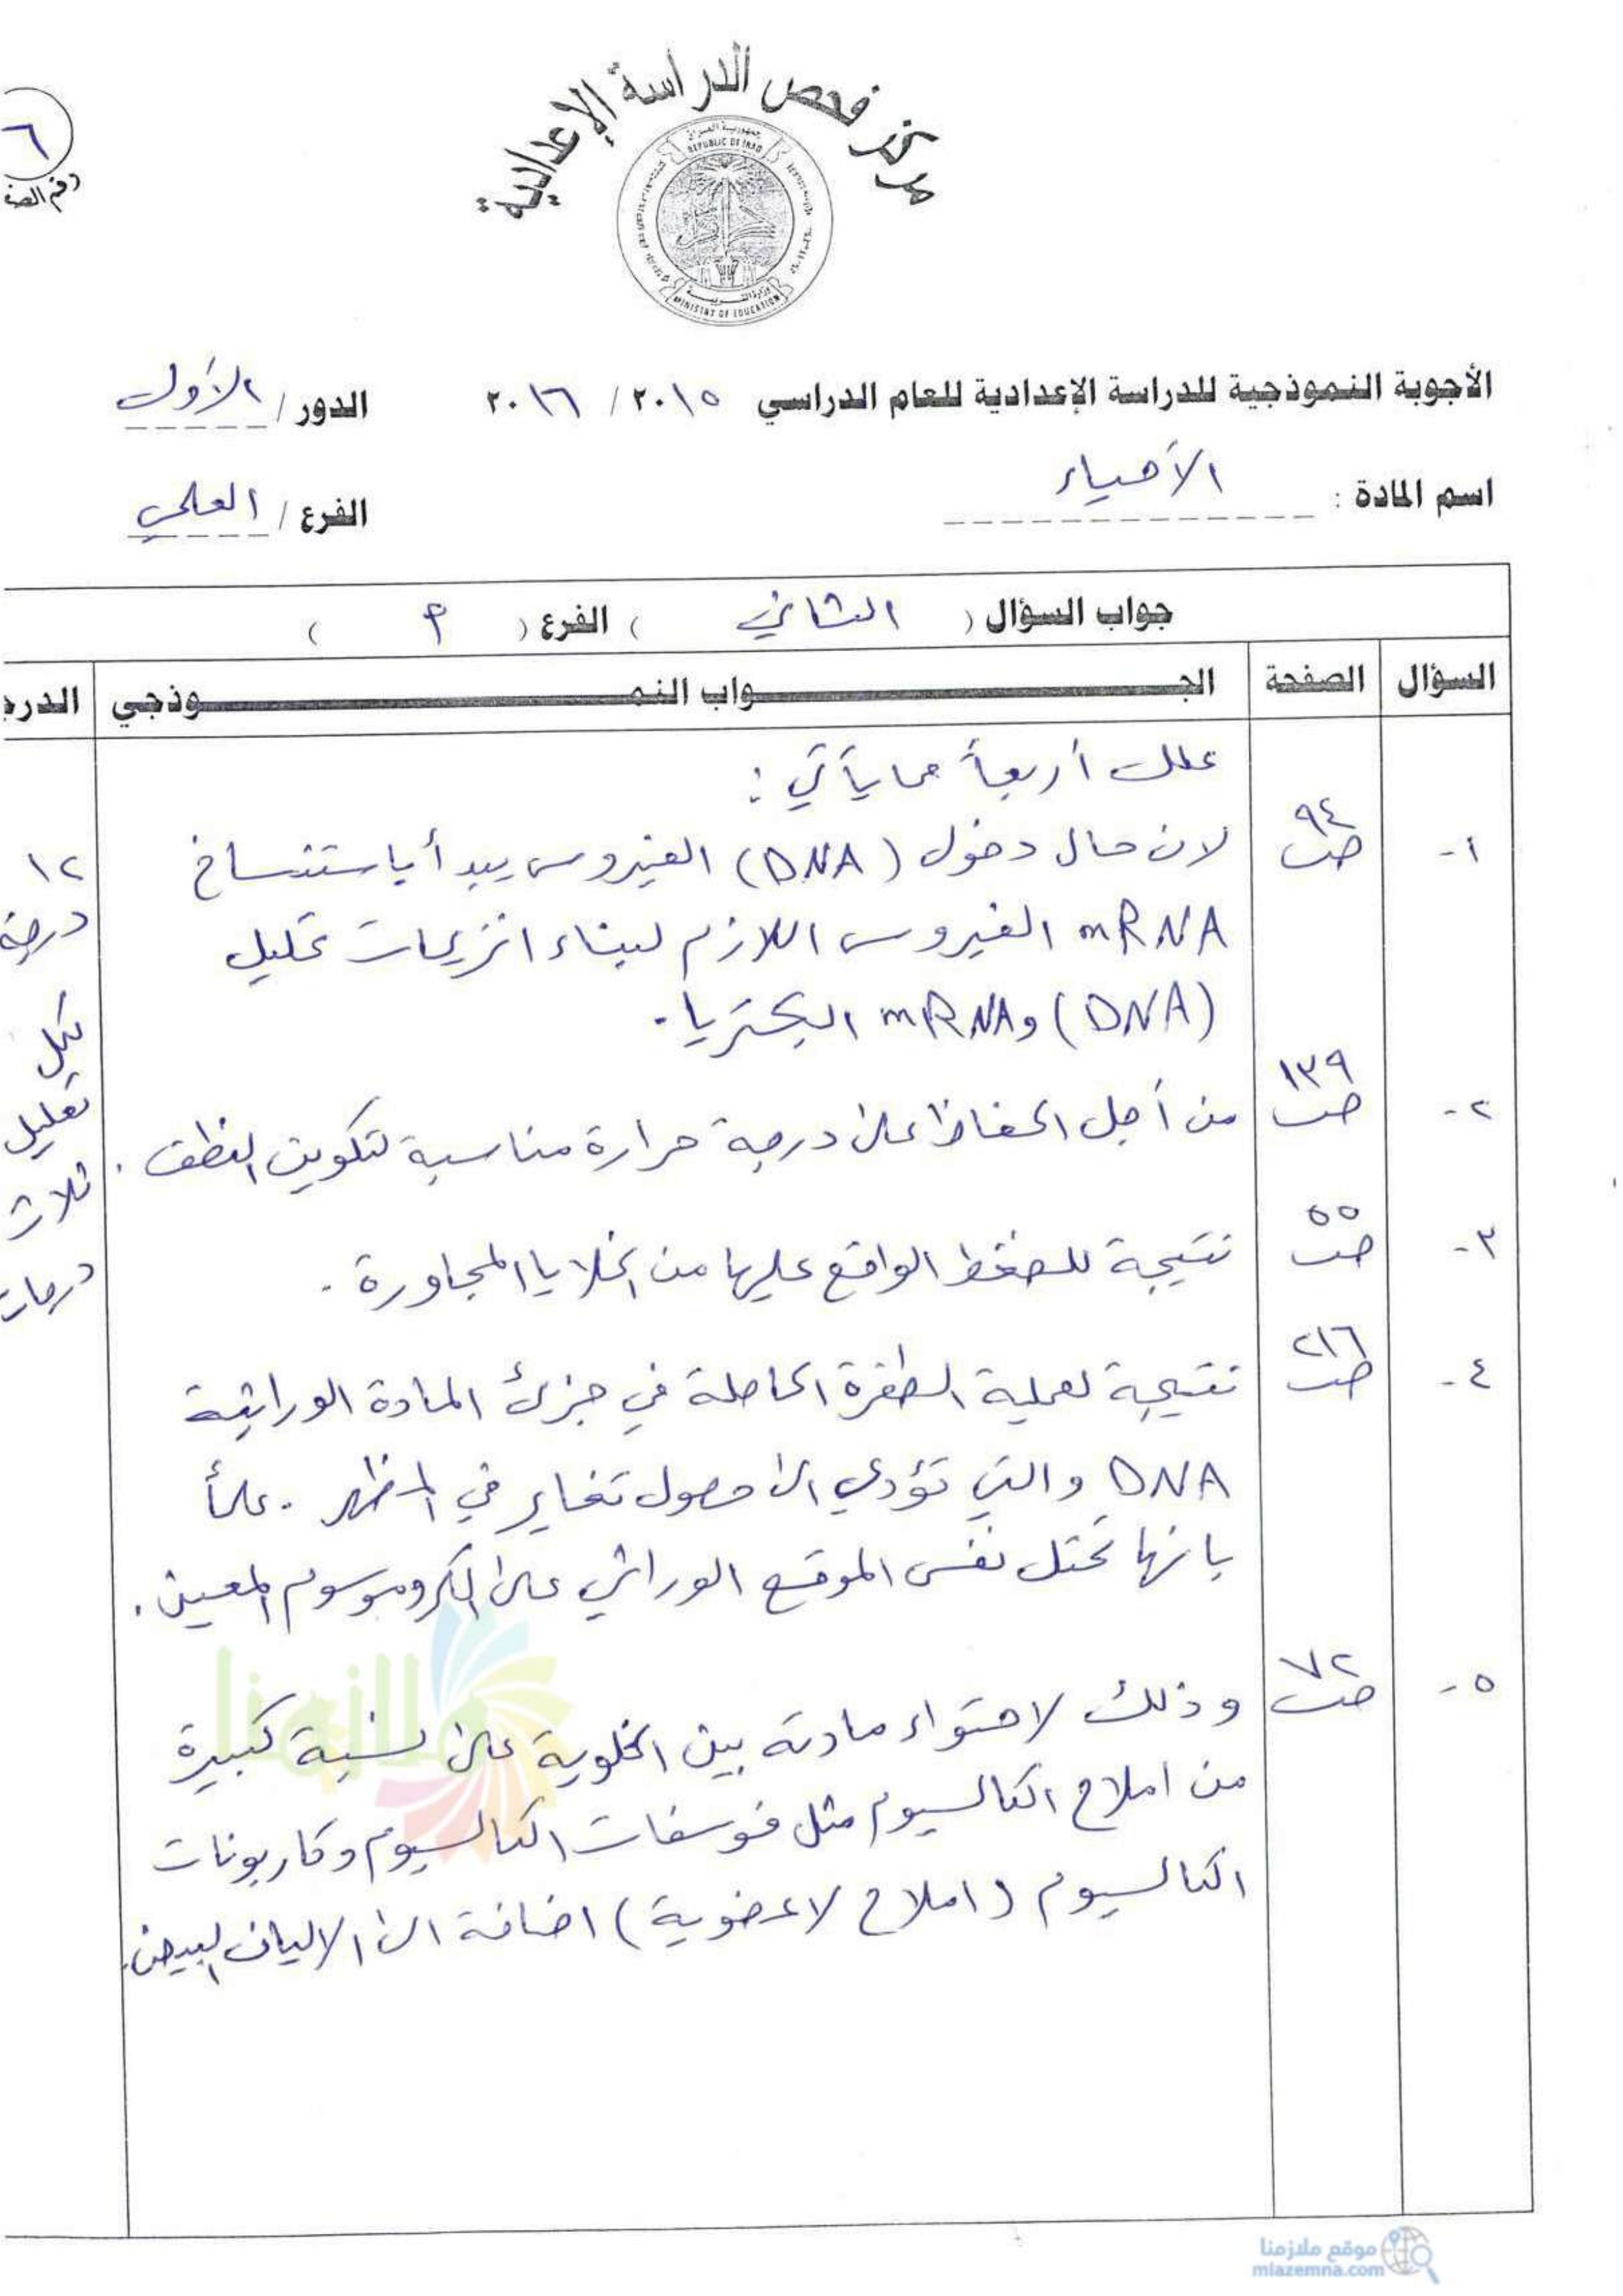 مركز فحص الدراسة الإعدادية
جمهورية العراق
REPUBLIC OF IRAQ
وزارة التربية
MINISTRY OF EDUCATION
٦
رقم الصف
الأجوبة النموذجية للدراسة الإعدادية للعام الدراسي ٢٠١٥ / ٢٠١٦ الدور / الأول
اسم المادة : الأحياء الفرع / العلمي
جواب السؤال ( الثاني ) الفرع ( م )
السؤال الصفحة الجـواب النمـوذجي الدرج
علل أربعاً مما يأتي :
١- ص ٩٤ لان حال دخول (DNA) الفيروس يبدأ باستنساخ
mRNA الفيروس اللازم لبناء انزيمات تحليل
(DNA) و mRNA البكتريا.
٢- ص ١٣٩ من أجل الحفاظ على درجة حرارة مناسبة لتكوين النطف .
٣- ص ٥٥ نتيجة للضغط الواقع عليها من الخلايا المجاورة .
٤- ص ٢١٦ نتيجة لعملية الطفرة الحاصلة في جزئ المادة الوراثية
DNA والتي تؤدي الى حصول تغاير في المظهر . علماً
بانها تحتل نفس الموقع الوراثي على الكروموسوم المعين .
٥- ص ٧٢ وذلك لاحتواء مادته بين الخلوية على نسبة كبيرة
من املاح الكالسيوم مثل فوسفات الكالسيوم وكاربونات
الكالسيوم (املاح لاعضوية) اضافة الى الالياف البيض.
١٢
درجة
لكل
تعليل
ثلاث
درجات
ملازمنا
موقع ملازمنا
mlazemna.com